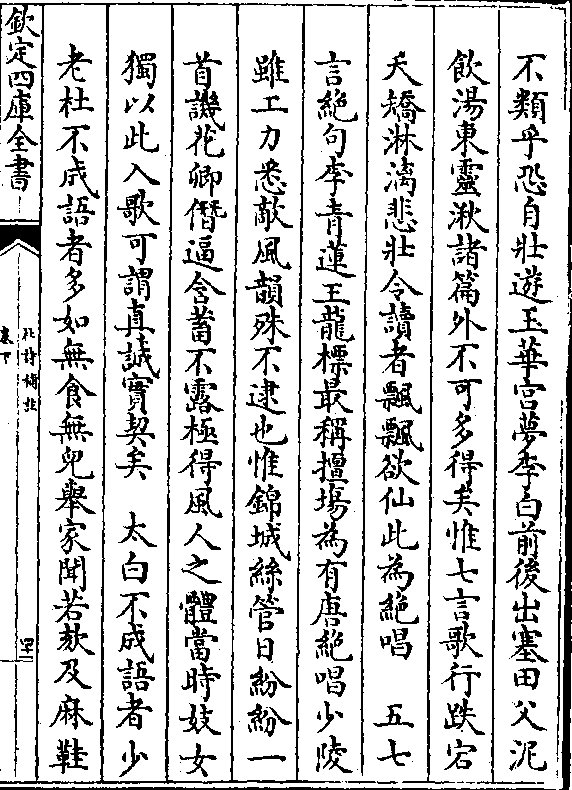 不類乎恐自壯遊玉華宮夢李白前後出塞田父泥
飲湯東靈湫諸篇外不可多得矣惟七言歌行跌宕
夭矯淋漓悲壯令讀者飄飄欲仙此為絶唱　五七
言絶句李青蓮王龍標最稱擅塲為有唐絶唱少陵
雖工力悉敵風韻殊不逮也惟錦城絲管日紛紛一
首譏花卿僭逼含蓄不露極得風人之體當時妓女
獨以此入歌可謂真誠實契矣　太白不成語者少
老杜不成語者多如無食無兒舉家聞若欬及麻鞋
欽定四庫全書
杜詩攟
卷下